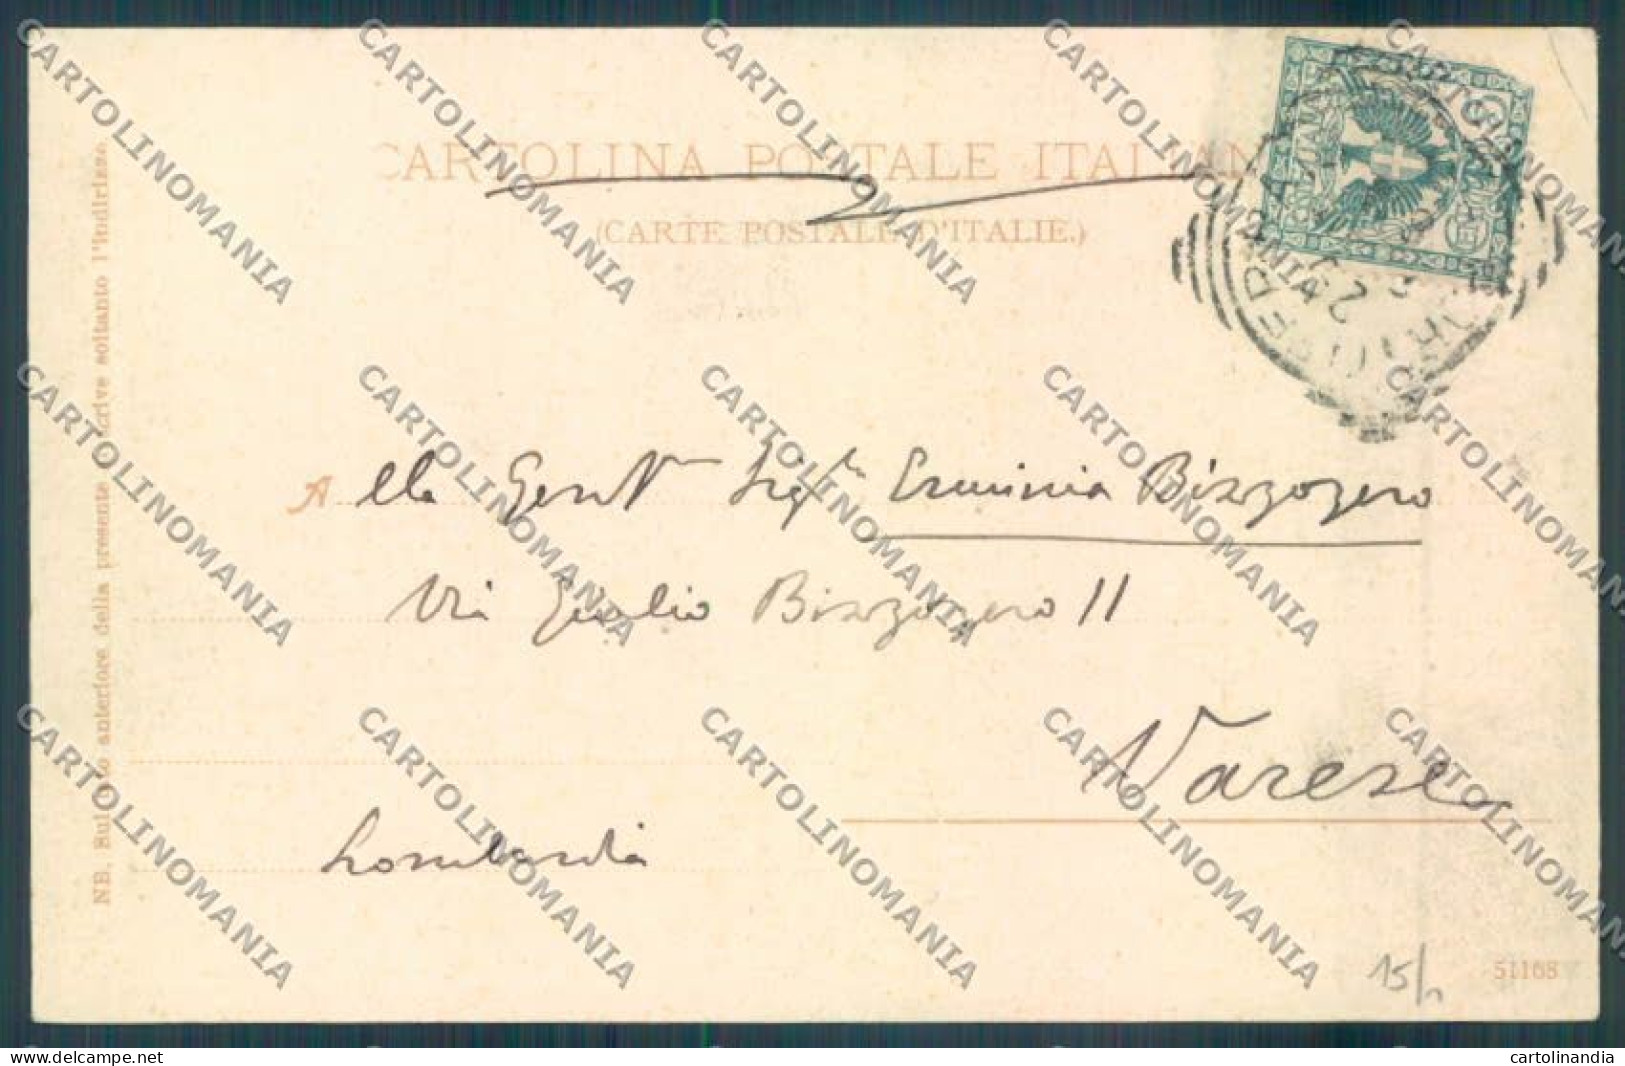 CARTOLINA POSTALE ITALIANA
(CARTE POSTALE D'ITALIE.)
NB. Sul lato anteriore della presente si scrive soltanto l'indirizzo.
Alla Gent.ma Sig.ra Erminia Bizzozero
Via Giulio Bizzozero 11
Varese
Lombardia
15/n
51168
CARTOLINOMANIA
www.delcampe.net
cartolinandia